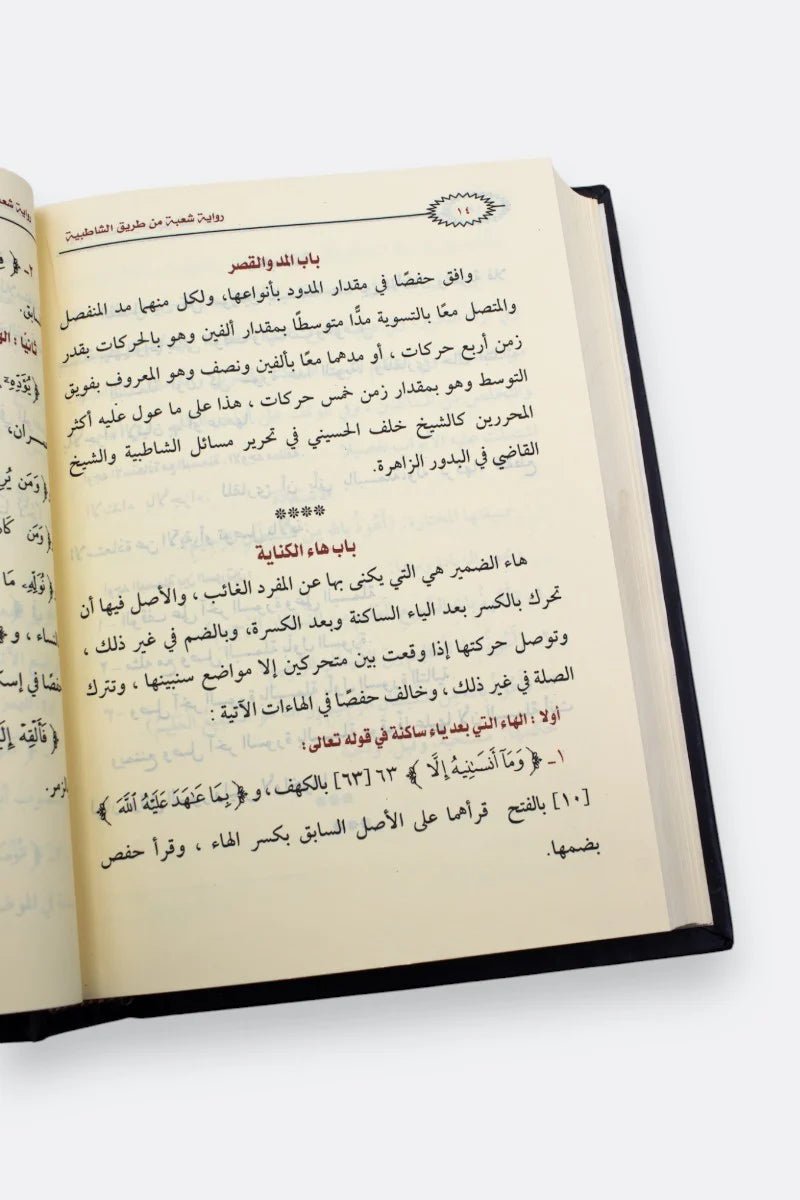 رواية شعبة من طريق الشاطبية
١٤
باب المد والقصر
وافق حفصًا في مقدار المدود بأنواعها، ولكل منهما مد المنفصل
والمتصل معًا بالتسوية مدًّا متوسطًا بمقدار ألفين وهو بالحركات بقدر
زمن أربع حركات ، أو مدهما معًا بألفين ونصف وهو المعروف بفويق
التوسط وهو بمقدار زمن خمس حركات ، هذا على ما عول عليه أكثر
المحررين كالشيخ خلف الحسيني في تحرير مسائل الشاطبية والشيخ
القاضي في البدور الزاهرة.
****
باب هاء الكناية
هاء الضمير هي التي يكنى بها عن المفرد الغائب ، والأصل فيها أن
تحرك بالكسر بعد الياء الساكنة وبعد الكسرة، وبالضم في غير ذلك ،
وتوصل حركتها إذا وقعت بين متحركين إلا مواضع سنبينها ، وتترك
الصلة في غير ذلك ، وخالف حفصًا في الهاءات الآتية :
أولا : الهاء التي بعد ياء ساكنة في قوله تعالى :
١ـ ﴿ وَمَآ أَنسَىٰنِيهُ إِلَّا ﴾ ٦٣ [٦٣] بالكهف ، و ﴿ بِمَا عَـٰهَدَ عَلَيْهُ ٱللَّهَ ﴾
[١٠] بالفتح قرأهما على الأصل السابق بكسر الهاء ، وقرأ حفص
بضمها.